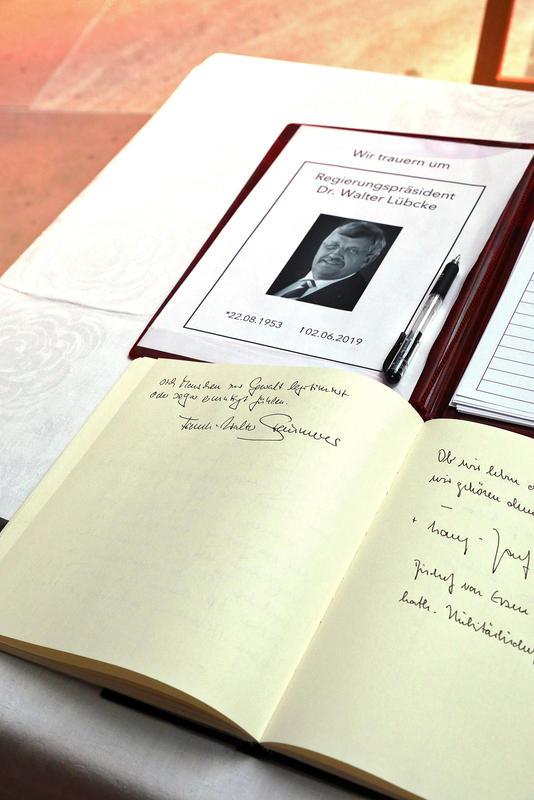 Wir trauern um
Regierungspräsident
Dr. Walter Lübcke
*22.08.1953 †02.06.2019
sich Menschen zur Gewalt legitimiert
oder sogar ermutigt fühlen.
Frank-Walter Steinmeier
Ob wir leben o
wir gehören dem
+ Franz-Josef
Bischof von Essen
kath. Militärbischof